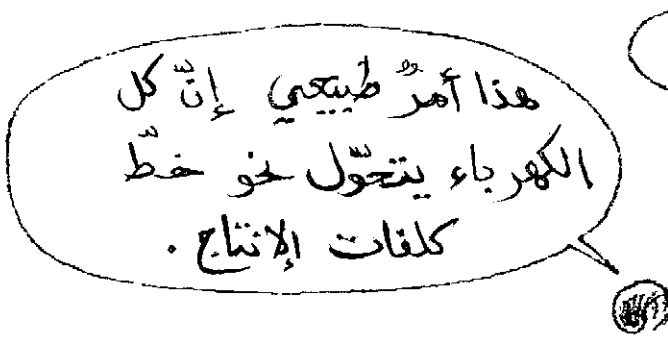 هذا أمرٌ طبيعي إنّ كل
الكهرباء يتحوّل نحو خطّ
كلفات الإنتاج.